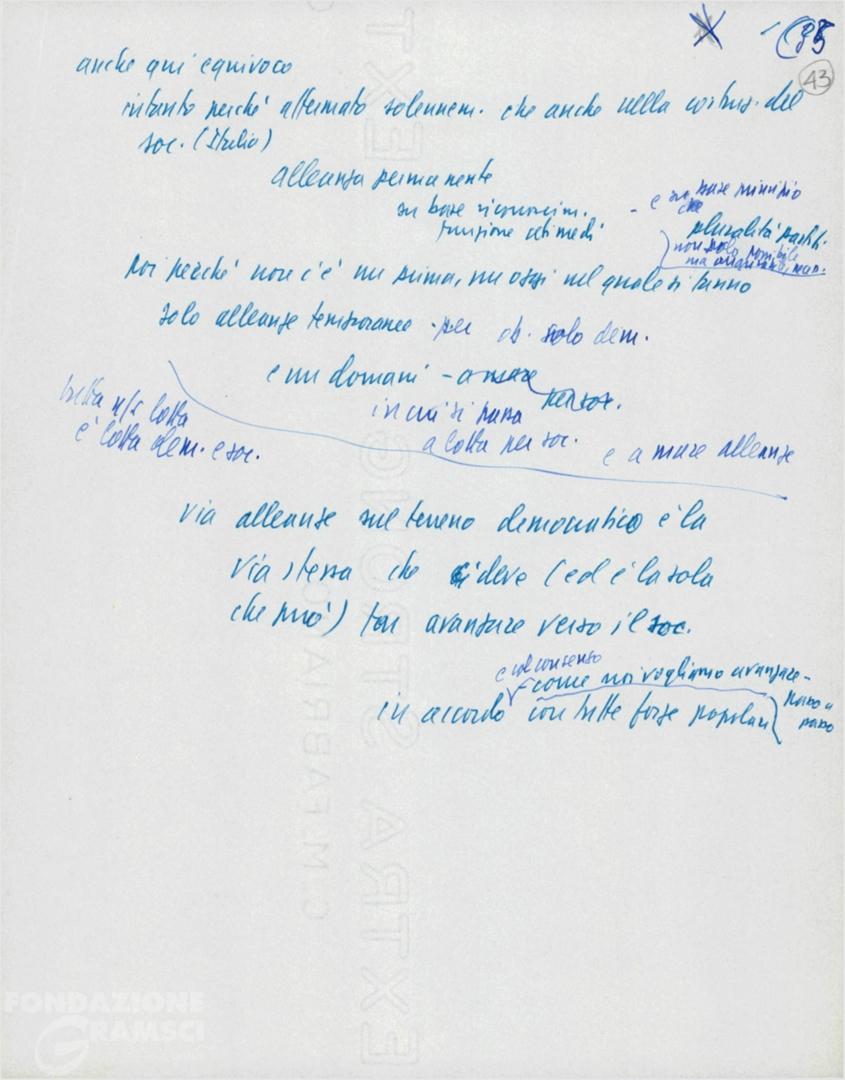 135
43
anche qui equivoco
intanto perché affermato solennem. che anche nella costruz. del
soc. (Italia)
alleanza permanente
su base riconoscim.
funzione ceti medi
- e su base principio
che
pluralità partiti
non solo possibile
ma
Poi perché non c'è un prima, un oggi nel quale si fanno
solo alleanze temporanee - per ob. solo dem.
e un domani -
per soc.
in cui si passa
a lotta per soc.
e a nuove alleanze
tutta n/s lotta
è lotta dem. e soc.
via alleanze sul terreno democratico è la
via stessa che si deve (ed è la sola
che può) far avanzare verso il soc.
e col consenso
- come noi vogliamo avanzare -
in accordo con tutte forze popolari
passo a
passo
EXTRA STRONG
C. M. FABRIANO
FONDAZIONE
GRAMSCI